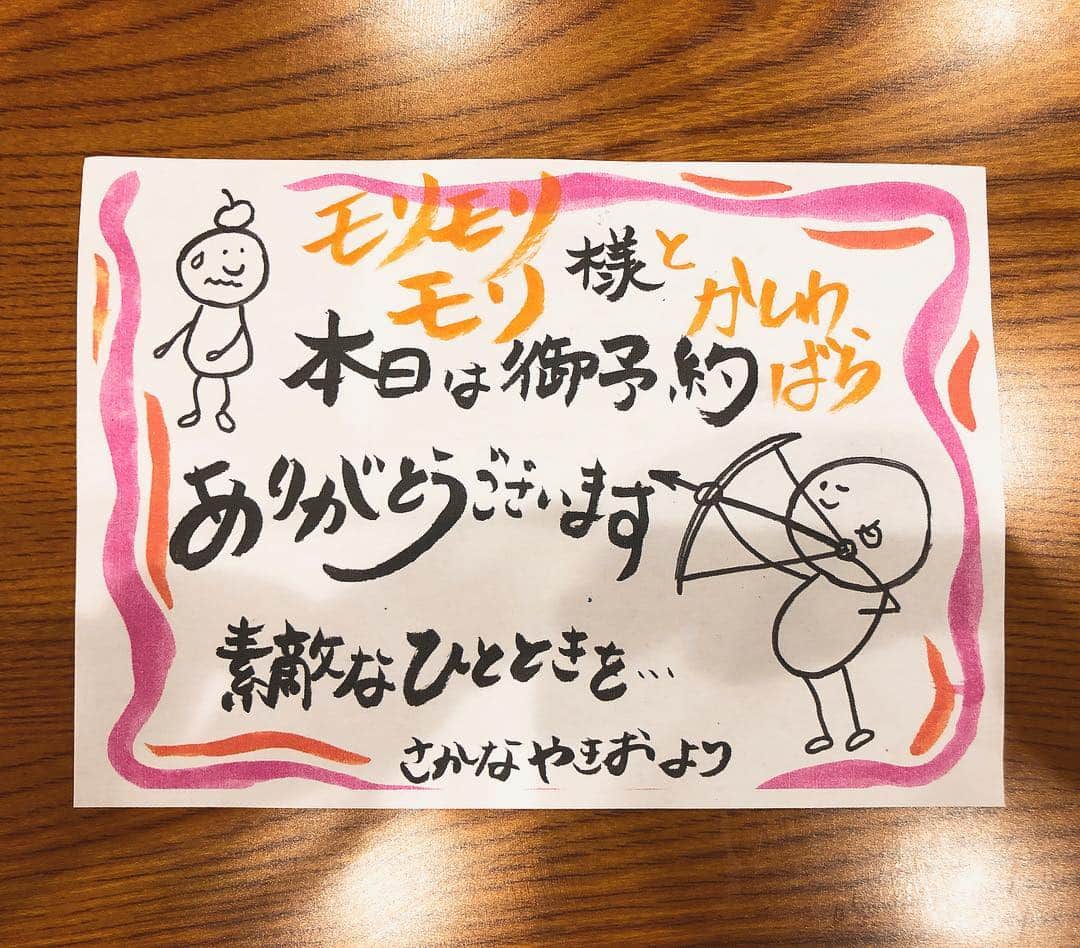 モリモリ
モリ 様とかしわ
ばら
本日は御予約
ありがとうございます
素敵なひとときを…
さかなやきおより